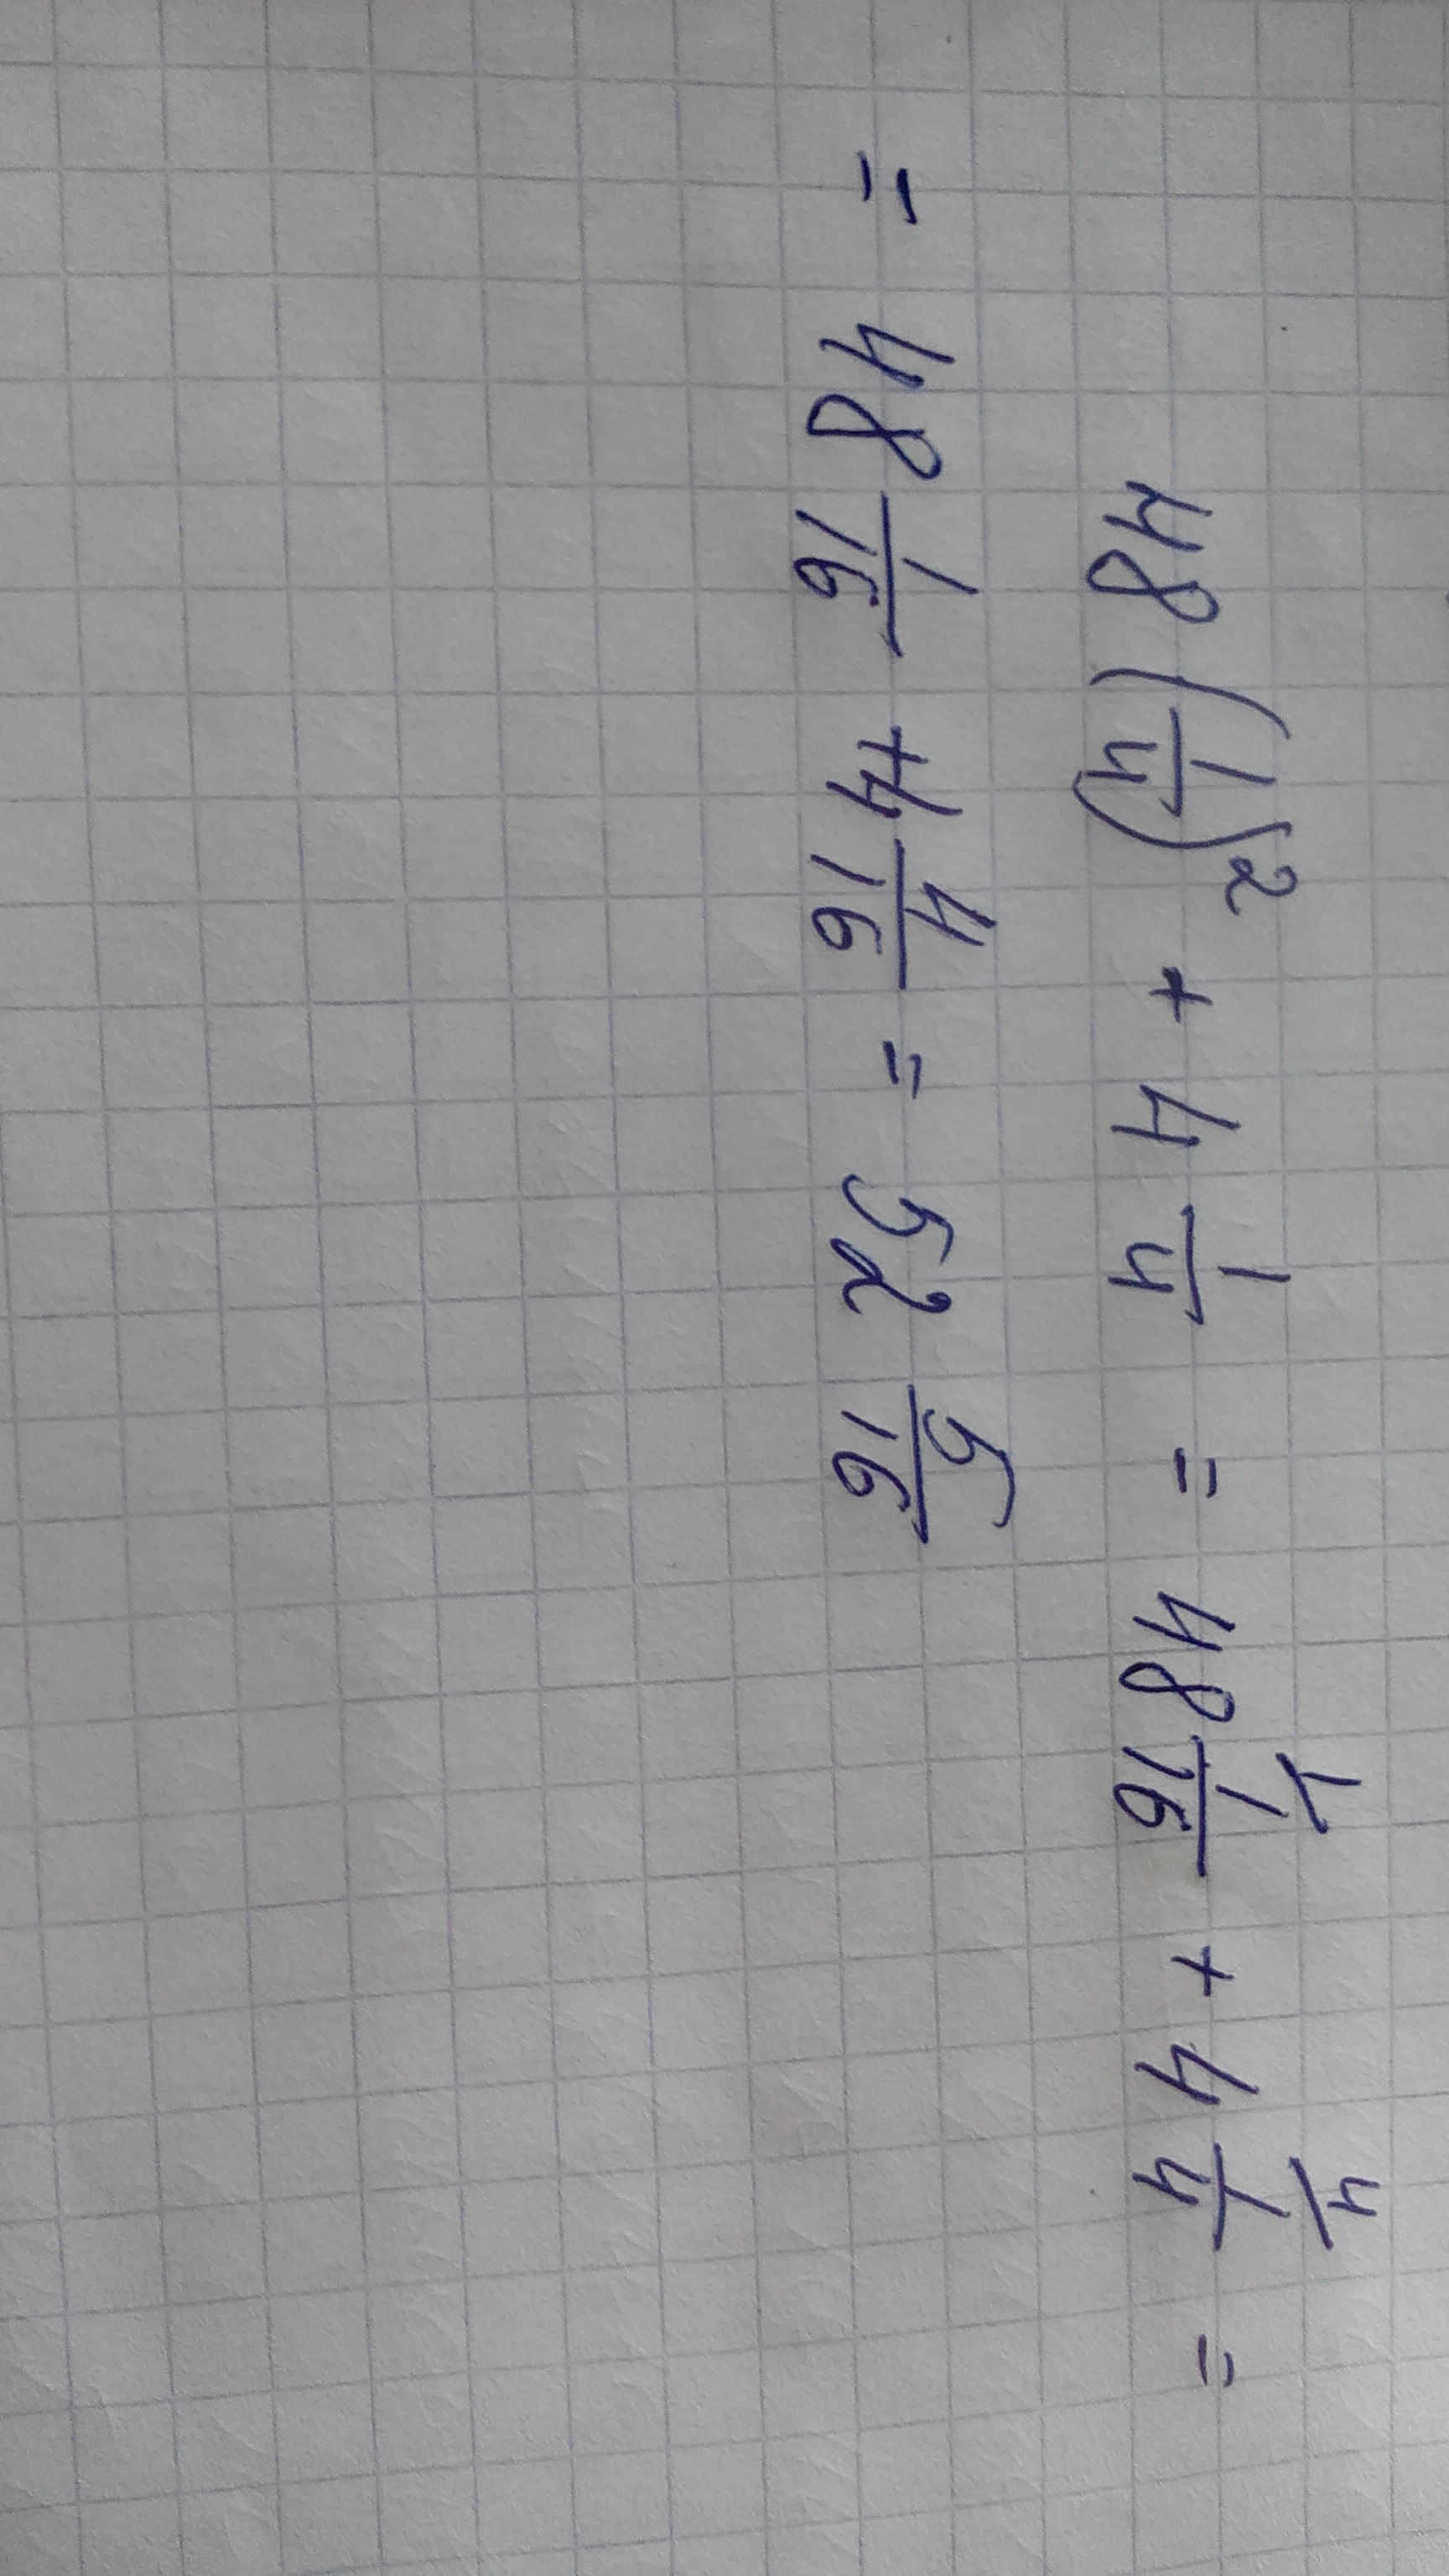 48 (1/4)² + 4 1/4 = 48 1/16 \1 + 4 1/4 \4 =
= 48 1/16 + 4 4/16 = 52 5/16